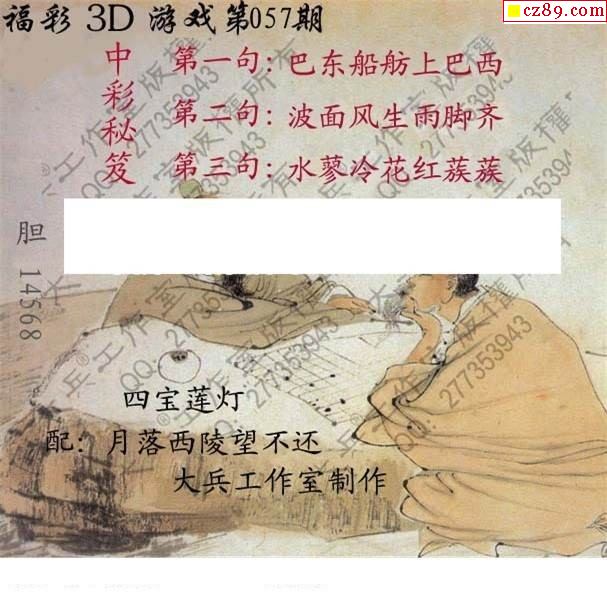 福彩 3D 游戏第057期
cz89.com
中彩秘笈
第一句：巴东船舫上巴西
第二句：波面风生雨脚齐
第三句：水蓼冷花红蔟蔟
胆 14568
四宝莲灯
配：月落西陵望不还
大兵工作室制作
大兵®工作室版权所有
QQ：277353943